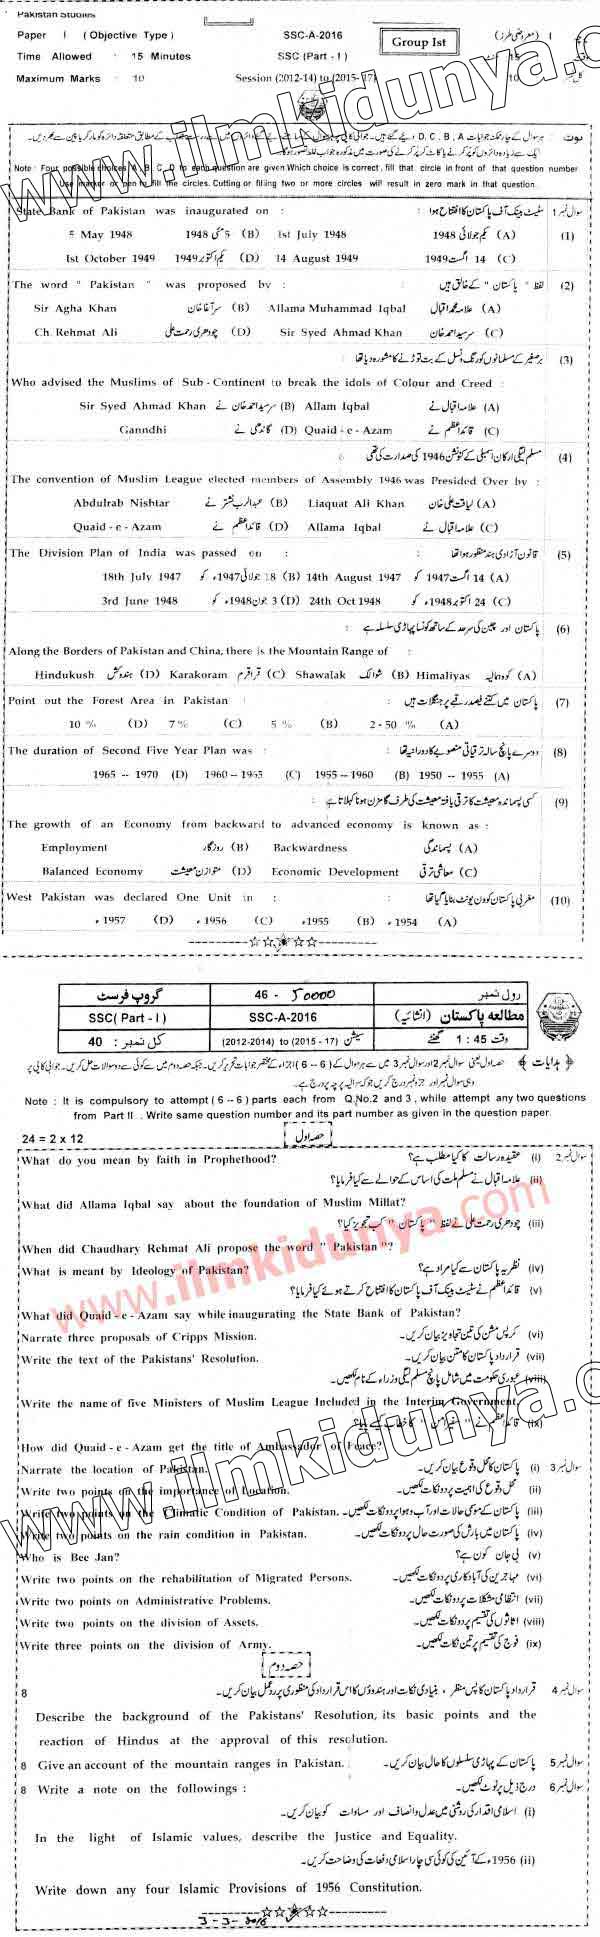 Pakistan Studies
Paper I (Objective Type) SSC-A-2016 Group Ist I (معروضی طرز)
Time Allowed : 15 Minutes SSC (Part - I) 15
Maximum Marks : 10 Session (2012-14) to (2015-17) 10
Note : Four possible choices A, B, C, D to each question are given Which choice is correct, fill that circle in front of that question number
Use marker or pen to fill the circles. Cutting or filling two or more circles will result in zero mark in that question.
State Bank of Pakistan was inaugurated on : سٹیٹ بینک آف پاکستان کا افتتاح ہوا : سوال نمبر 1
5 May 1948 5 مئی 1948 (B) 1st July 1948 یکم جولائی 1948 (A) (1)
1st October 1949 یکم اکتوبر 1949 (D) 14 August 1949 14 اگست 1949 (C)
The word " Pakistan " was proposed by : لفظ " پاکستان " کے خالق ہیں (2)
Sir Agha Khan سر آغا خان (B) Allama Muhammad Iqbal علامہ محمد اقبال (A)
Ch. Rehmat Ali چودھری رحمت علی (D) Sir Syed Ahmad Khan سر سید احمد خان (C)
برصغیر کے مسلمانوں کو رنگ و نسل کے بت توڑنے کا مشورہ دیا تھا (3)
Who advised the Muslims of Sub - Continent to break the idols of Colour and Creed :
Sir Syed Ahmad Khan سر سید احمد خان نے (B) Allam Iqbal علامہ اقبال نے (A)
Ganndhi گاندھی نے (D) Quaid - e - Azam قائد اعظم نے (C)
مسلم لیگی ارکان اسمبلی کے کنونشن 1946 کی صدارت کی تھی (4)
The convention of Muslim League elected members of Assembly 1946 was Presided Over by :
Abdulrab Nishtar عبدالرب نشتر نے (B) Liaquat Ali Khan لیاقت علی خان (A)
Quaid - e - Azam قائد اعظم نے (D) Allama Iqbal علامہ اقبال نے (C)
The Division Plan of India was passed on : قانون آزادی ہند منظور ہوا تھا (5)
18th July 1947 18 جولائی 1947ء کو (B) 14th August 1947 14 اگست 1947 کو (A)
3rd June 1948 3 جون 1948ء کو (D) 24th Oct 1948 24 اکتوبر 1948ء کو (C)
پاکستان اور چین کی سرحد کے ساتھ کونسا پہاڑی سلسلہ ہے (6)
Along the Borders of Pakistan and China, there is the Mountain Range of :
Hindukush ہندوکش (D) Karakoram قراقرم (C) Shawalak شوالک (B) Himaliyas کوہ ہمالیہ (A)
Point out the Forest Area in Pakistan : پاکستان میں کتنے فیصد رقبے پر جنگلات ہیں (7)
10 % (D) 7 % (C) 5 % (B) 2 - 50 % (A)
The duration of Second Five Year Plan was : دوسرے پانچ سالہ ترقیاتی منصوبے کا دورانیہ تھا (8)
1965 -- 1970 (D) 1960 -- 1965 (C) 1955 -- 1960 (B) 1950 -- 1955 (A)
کسی پسماندہ معیشت کا ترقی یافتہ معیشت کی طرف گامزن ہونا کہلاتا ہے (9)
The growth of an Economy from backward to advanced economy is known as :
Employment روزگار (B) Backwardness پسماندگی (A)
Balanced Economy متوازن معیشت (D) Economic Development معاشی ترقی (C)
West Pakistan was declared One Unit in : مغربی پاکستان کو ون یونٹ بنایا گیا تھا (10)
1957ء (D) 1956ء (C) 1955ء (B) 1954ء (A)
گروپ فرسٹ 46 - 50000 رول نمبر
SSC( Part - I ) SSC-A-2016 مطالعہ پاکستان (انشائیہ)
کل نمبر : 40 (2012-2014) to (2015 - 17) سیشن وقت 1 : 45 گھنٹے
Note : It is compulsory to attempt ( 6 -- 6 ) parts each from Q.No.2 and 3 , while attempt any two questions
from Part II . Write same question number and its part number as given in the question paper.
24 = 2 x 12 حصہ اول
What do you mean by faith in Prophethood? عقیدہ رسالت کا کیا مطلب ہے؟ (i) سوال نمبر 2
علامہ اقبال نے مسلم ملت کی اساس کے حوالے سے کیا فرمایا؟ (ii)
What did Allama Iqbal say about the foundation of Muslim Millat?
چودھری رحمت علی نے لفظ " پاکستان " کب تجویز کیا؟ (iii)
When did Chaudhary Rehmat Ali propose the word " Pakistan "?
What is meant by Ideology of Pakistan? نظریہ پاکستان سے کیا مراد ہے؟ (iv)
قائد اعظم نے سٹیٹ بینک آف پاکستان کا افتتاح کرتے ہوئے کیا فرمایا؟ (v)
What did Quaid - e - Azam say while inaugurating the State Bank of Pakistan?
Narrate three proposals of Cripps Mission. کرپس مشن کی تین تجاویز بیان کریں۔ (vi)
Write the text of the Pakistans' Resolution. قرارداد پاکستان کا متن بیان کریں۔ (vii)
عبوری حکومت میں شامل پانچ مسلم لیگی وزراء کے نام لکھیں۔ (viii)
Write the name of five Ministers of Muslim League Included in the Interim Government.
قائد اعظم نے " سفیر امن " کا خطاب کیسے پایا؟ (ix)
How did Quaid - e - Azam get the title of Ambassador of Peace?
Narrate the location of Pakistan. پاکستان کا محل وقوع بیان کریں۔ (i) سوال نمبر 3
Write two points on the importance of Location. محل وقوع کی اہمیت پر دو نکات لکھیں۔ (ii)
Write two points on the Climatic Condition of Pakistan. پاکستان کے موسمی حالات اور آب و ہوا پر دو نکات لکھیں۔ (iii)
Write two points on the rain condition in Pakistan. پاکستان میں بارش کی صورت حال پر دو نکات لکھیں۔ (iv)
Who is Bee Jan? بی جان کون ہے؟ (v)
Write two points on the rehabilitation of Migrated Persons. مہاجرین کی آباد کاری پر دو نکات لکھیں۔ (vi)
Write two points on Administrative Problems. انتظامی مشکلات پر دو نکات لکھیں۔ (vii)
Write two points on the division of Assets. اثاثوں کی تقسیم پر دو نکات لکھیں۔ (viii)
Write three points on the division of Army. فوج کی تقسیم پر تین نکات لکھیں۔ (ix)
حصہ دوم
8 قرارداد پاکستان کا پس منظر ، بنیادی نکات اور ہندوؤں کا اس قرارداد کی منظوری پر ردعمل بیان کریں۔ سوال نمبر 4
Describe the background of the Pakistans' Resolution, its basic points and the
reaction of Hindus at the approval of this resolution.
8 Give an account of the mountain ranges in Pakistan. پاکستان کے پہاڑی سلسلوں کا حال بیان کریں۔ سوال نمبر 5
8 Write a note on the followings : درج ذیل پر نوٹ لکھیں۔ سوال نمبر 6
(i) اسلامی اقدار کی روشنی میں عدل و انصاف اور مساوات کو بیان کریں۔
In the light of Islamic values, describe the Justice and Equality.
(ii) 1956ء کے آئین کی کوئی سی چار اسلامی دفعات کی وضاحت کریں۔
Write down any four Islamic Provisions of 1956 Constitution.
3-3-2016
www.ilmkidunya.com
www.ilmkidunya.com
www.ilmkidunya.com